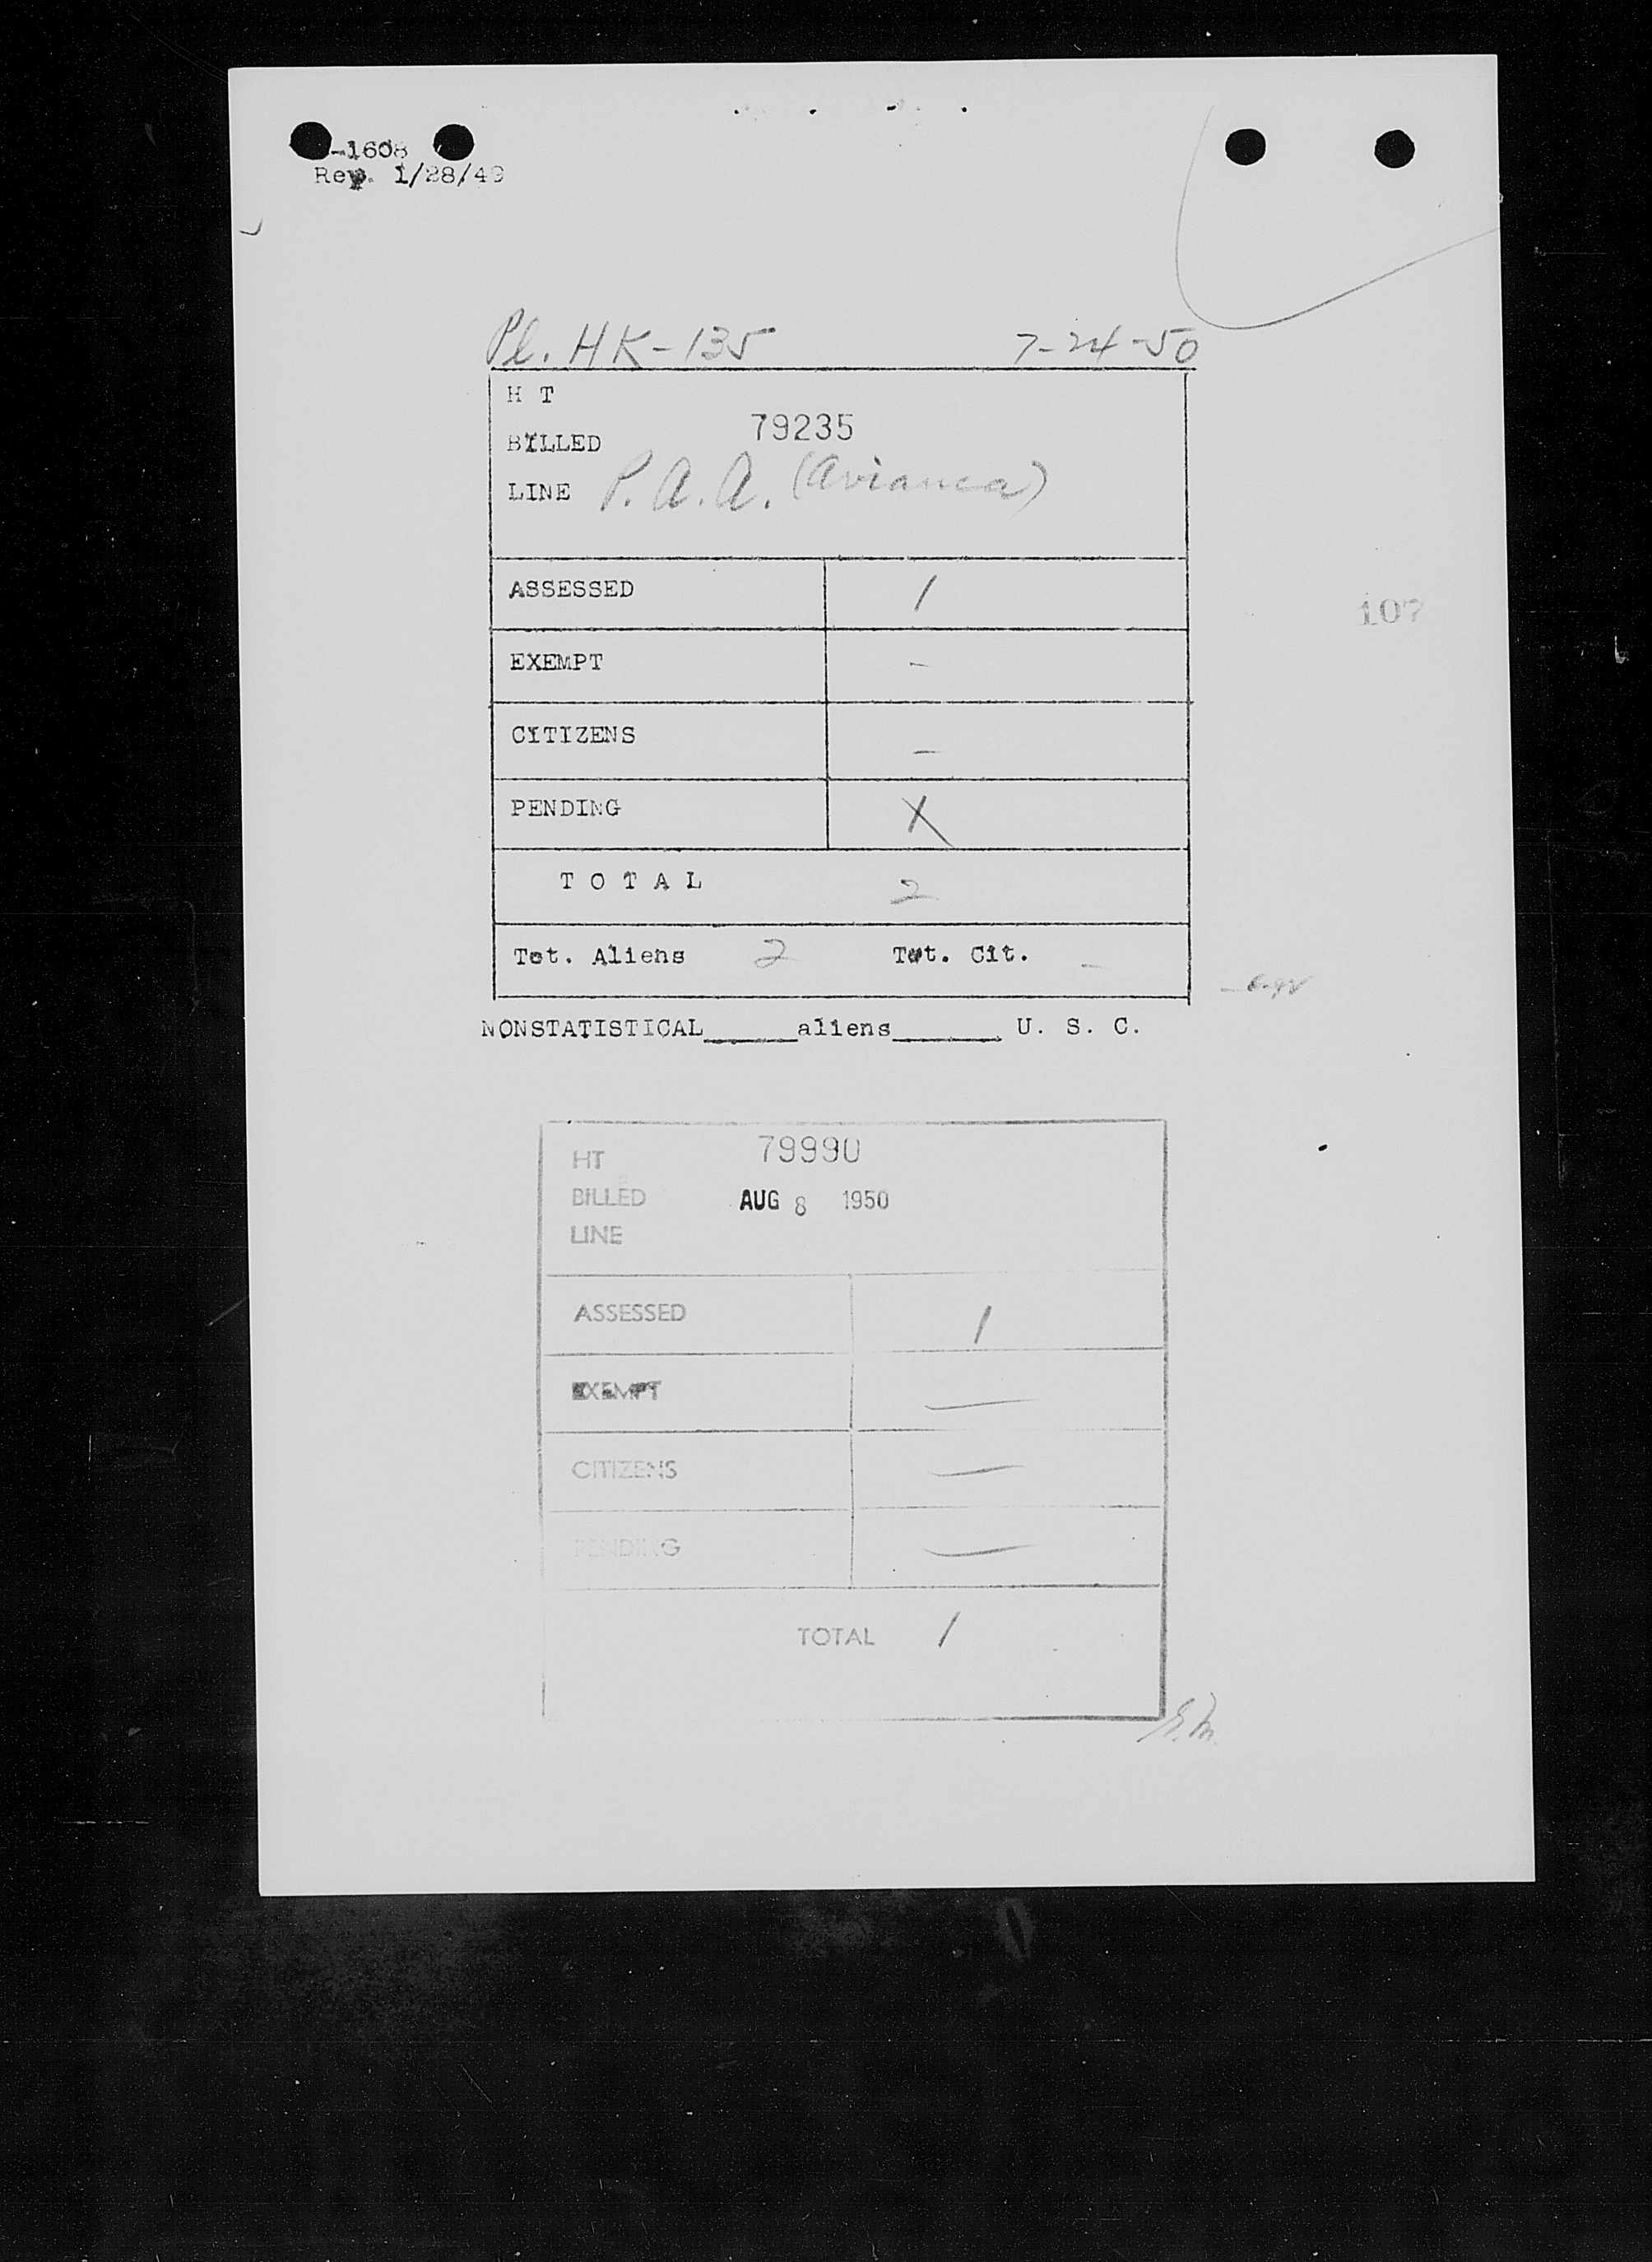 -1608
Rev. 1/28/49
Pl. HK-135 7-24-50
H T
79235
BILLED
LINE P. A. A. (Avianca)
ASSESSED 1
107
EXEMPT -
CITIZENS -
PENDING X
T O T A L 2
Tot. Aliens 2 Tot. Cit. -
NONSTATISTICAL_____aliens______ U. S. C.
HT 79990
BILLED AUG 8 1950
LINE
ASSESSED 1
EXEMPT —
CITIZENS —
PENDING —
TOTAL 1